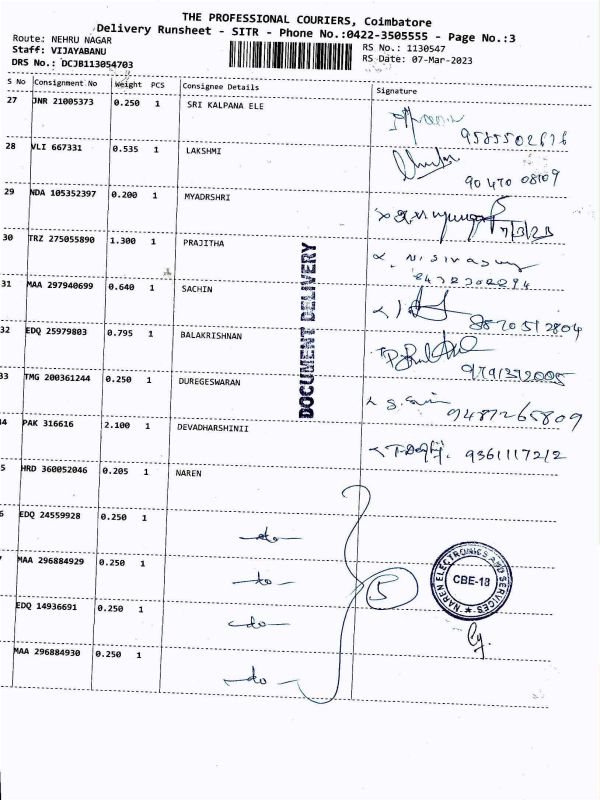 THE PROFESSIONAL COURIERS, Coimbatore
Delivery Runsheet - SITR - Phone No.:0422-3505555 - Page No.:3
Route: NEHRU NAGAR
RS No.: 1130547
Staff: VIJAYABANU
RS Date: 07-Mar-2023
DRS No.: DCJB113054703
S No Consignment No Weight PCS Consignee Details Signature
27 JNR 21005373 0.250 1 SRI KALPANA ELE
28 VLI 667331 0.535 1 LAKSHMI
90470 08109
29 NDA 105352397 0.200 1 MYADRSHRI
7/3/23
30 TRZ 275055890 1.300 1 PRAJITHA
31 MAA 297940699 0.640 1 SACHIN
8870512804
32 EDQ 25979803 0.795 1 BALAKRISHNAN
33 TMG 200361244 0.250 1 DUREGESWARAN
9487265809
4 PAK 316616 2.100 1 DEVADHARSHINII
9361117212
5 HRD 360052046 0.205 1 NAREN
6 EDQ 24559928 0.250 1 -do-
MAA 296884929 0.250 1 -do-
5
EDQ 14936691 0.250 1 -do-
MAA 296884930 0.250 1 -do-
DOCUMENT DELIVERY
NAREN ELECTRONICS AND SERVICES
CBE-18